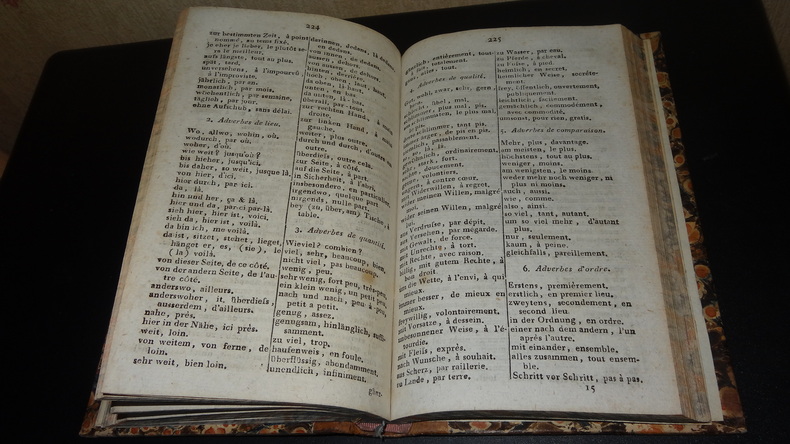 224
zur bestimmten Zeit, à point
nommé, au tems fixé.
je eher je lieber, le plutôt se-
ra le meilleur.
aufs längste, tout au plus.
spät, tard.
unversehens, à l'impourvû,
à l'improviste.
jährlich, par an.
monatlich, par mois.
wöchentlich, par semaine,
täglich, par jour.
ohne Aufschub, sans délai.
2. Adverbes de lieu.
Wo, allwo, wohin, où.
wodurch, par où.
woher, d'où.
wie weit? jusqu'où?
bis hieher, jusqu'ici.
bis daher, so weit, jusque là.
von hier, d'ici.
hier durch, par ici.
da, là.
hin und her, ça & là.
hier und da, par-ci par-là.
sieh hier, hier ist, voici,
sieh da, hier ist, voilà.
da bin ich, me voilà.
da ist, sitzet, stehet, lieget,
hängt er, es, (sie), le
(la) voilà.
von dieser Seite, de ce côté.
von der andern Seite, de l'au-
tre côté.
anderswo, ailleurs.
anderswoher, it. überdiefs,
ausserdem, d'ailleurs.
nahe, près.
hier in der Nähe, ici près.
weit, loin.
von weitem, von ferne, de
loin.
sehr weit, bien loin.
darinnen, dedans, là dedans
en dedans.
von innen, de dedans.
aussen, dehors.
von aussen, de dehors.
hinten, derrière.
da oben, là haut.
unten, en bas.
da unten, là-bas.
überall, par-tout.
zur rechten Hand, à
droite.
zur linken Hand, à
gauche.
weiter, plus outre.
durch und durch, d'outre en
outre.
überdiefs, outre cela.
zur Seite, à côté.
auf die Seite, à part.
in Sicherheit, à l'abri.
insbesondere, en particulier.
irgendwo, quelque part.
nirgends, nulle part.
bey (zu, über, am) Tische, à
table.
3. Adverbes de quantité.
Wieviel? combien?
viel, sehr, beaucoup, bien,
nicht viel, pas beaucoup.
wenig, peu.
sehr wenig, fort peu, très-peu,
ein klein wenig, un petit peu,
nach und nach, peu à peu,
petit à petit.
genug, assez.
genugsam, hinlänglich, suffi-
samment.
zu viel, trop.
haufenweis, en foule.
überflüssig, abondamment.
unendlich, infiniment.
225
entièrement, tout
totalement.
alles, tout.
4. Adverbes de qualité.
wohl, zwar,
übel, mal.
schlimmer, plus mal, pis.
le plus mal,
schlimmer, tant pis.
ärger, de pis en pis.
passablement.
ordinairement.
fort.
doucement.
volontiers.
à contre cœur.
Widerwillen, à regret.
wider seinen Willen, malgré
moi.
wider seinen Willen, malgré
lui.
aus Verdrufse, par dépit.
aus Versehen, par mégarde.
mit Gewalt, de force.
mit Unrecht, à tort.
mit Recht, avec raison.
billig, mit gutem Rechte, à
bon droit.
um die Wette, à l'envi, à qui
mieux.
immer besser, de mieux en
mieux.
freywillig, volontairement.
mit Vorsatze, à dessein.
unbesonnener Weise, à l'é-
tourdie.
mit Fleifs, exprès.
nach Wunsche, à souhait.
aus Scherz, par raillerie.
zu Lande, par terre.
zu Wasser, par eau.
zu Pferde, à cheval.
zu Fufse, à pied.
heimlich, en secret.
heimlicher Weise, secrète-
ment.
frey, öffentlich, ouvertement,
publiquement.
leichtlich, facilement.
gemächlich, commodément,
avec commodité.
umsonst, pour rien, gratis.
5. Adverbes de comparaison.
Mehr, plus, davantage.
am meisten, le plus.
höchstens, tout au plus.
weniger, moins.
am wenigsten, le moins.
weder mehr noch weniger, ni
plus ni moins.
auch, aussi.
wie, comme.
also, ainsi.
so viel, tant, autant.
um so viel mehr, d'autant
plus.
nur, seulement.
kaum, à peine.
gleichfalls, pareillement.
6. Adverbes d'ordre.
Erstens, premièrement.
erstlich, en premier lieu.
zweytens, secondement, en
second lieu.
in der Ordnung, en ordre.
einer nach dem andern, l'un
après l'autre.
mit einander, ensemble.
alles zusammen, tout ensem-
ble.
Schritt vor Schritt, pas à pas.
15